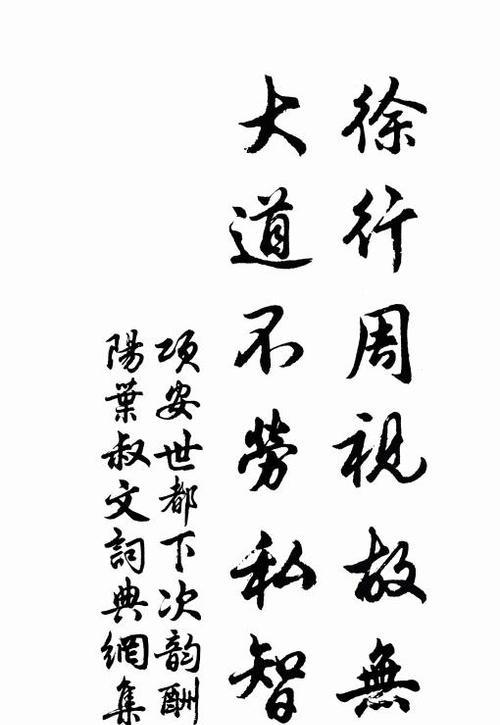 徐行周視故無
大道不勞私智
項安世都下次韵酬
陽葉叔文詞典網集